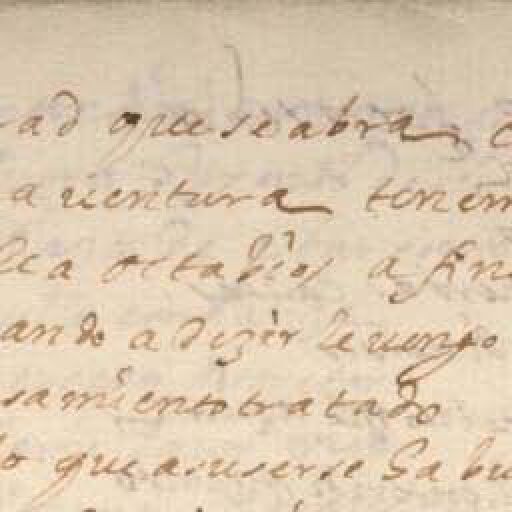 ad que se abra
a uentura tenem
lea octabios a fin
ando a dezir le uengo
samiento tratado
lo que a suserse Sa bu